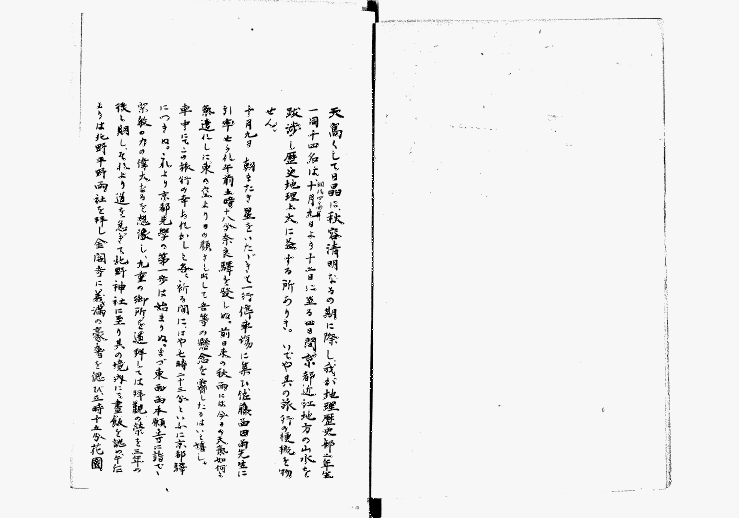 天高くして日晶に、秋容清明なるの期に際し、我が地理歴史部二年生
一同十四名は、十月九日より十二日に至る四日間京都近江地方の山水を
跋渉し歴史地理上大に益する所ありき。いでや其の旅行の梗概を物
せん。
十月九日 朝まだき星をいたゞきて一行停車場に集ひ佐藤西田両先生に
引率せられ午前五時十八分奈良驛を發しぬ。前日来の秋雨には今日の天氣如何と
氣遣ひしに東の空より日の顔さし出して吾等の懸念を霽したるはいと嬉し。
車中にてこの旅行の幸あれかしと各〻祈る間に、はや七時二十三分といふに京都驛
につきぬ。これより京都見學の第一歩は始まりぬ。まづ東西両本願寺に詣でゝ
宗教の力の偉大なるを想像し、九重の御所を遥拝しては拝観の榮を三年の
後と期し、それより道を急ぎて北野神社に至り其の境内にて晝飯を認め午后
よりは北野平野両社を拝し金閣寺に義満の豪奢を偲び五時十五分花園